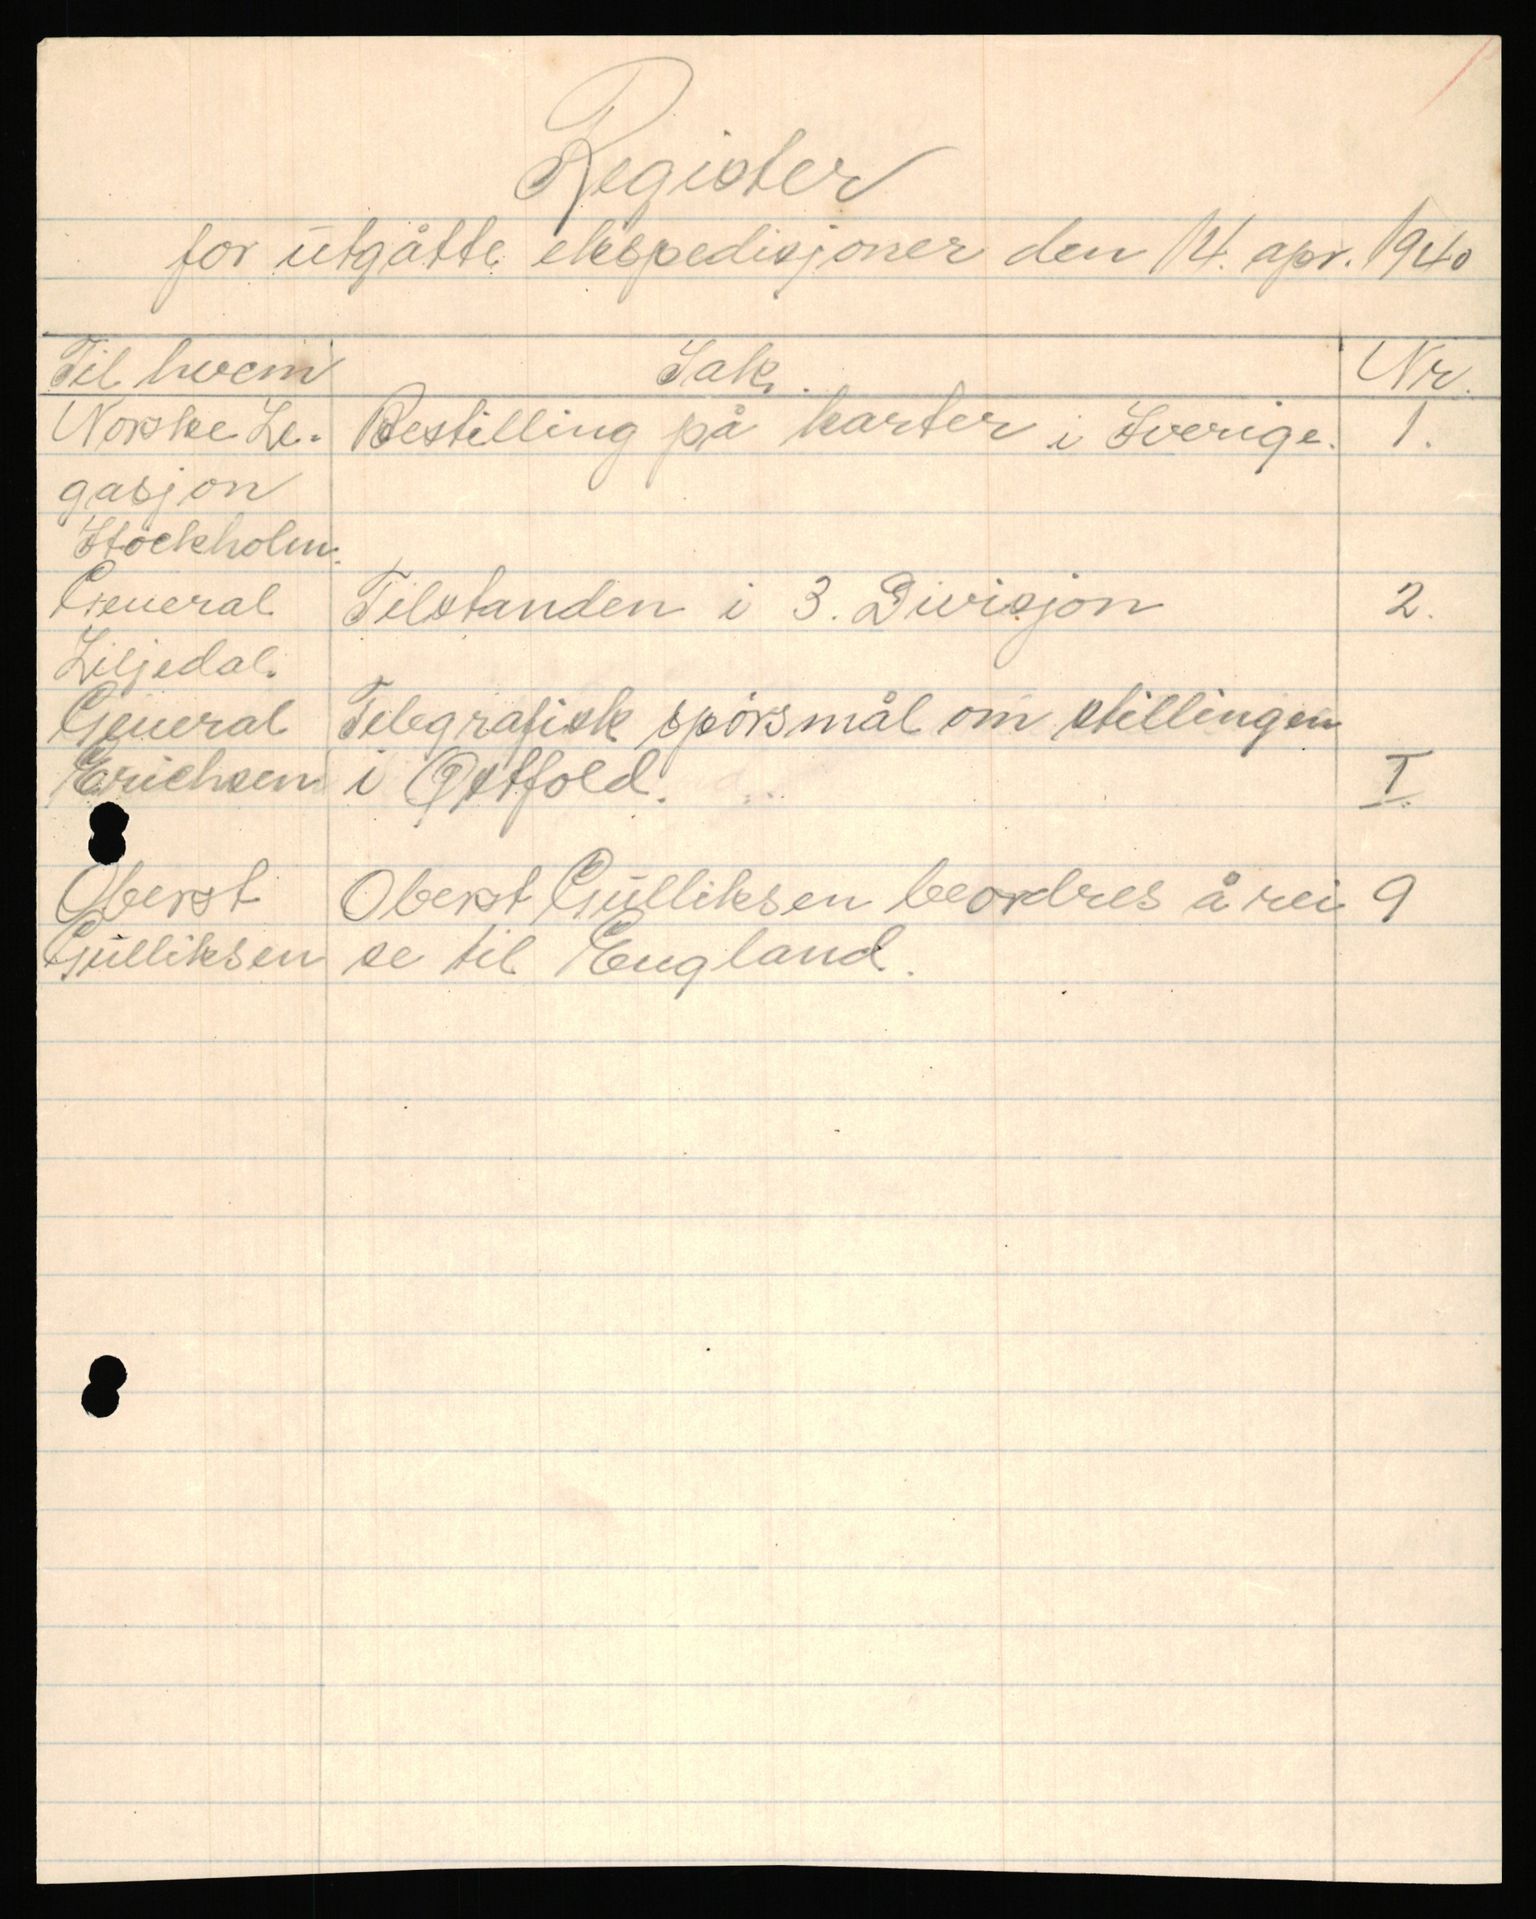 Register
for utgåtte ekspedisjoner den 14. apr. 1940
Til hvem Sak. Nr.
Norske Le- Bestilling på karter i Sverige. 1.
gasjon
Stockholm.
General Tilstanden i 3. Divisjon 2.
Liljedal.
General Telegrafisk spörsmål om stillingen
Erichsen i Østfold. I.
Oberst Oberst Gulliksen beordres å rei 9
Gulliksen se til England.